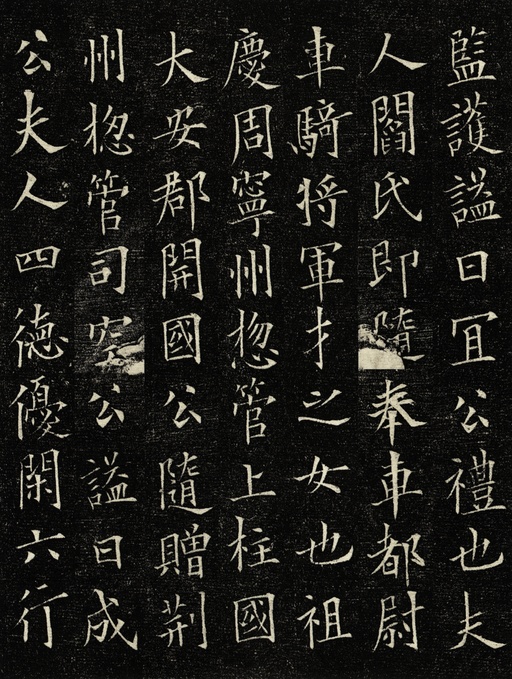 監護謚曰冝公禮也夫
人閻氏即隨奉車都尉
車騎将軍才之女也祖
慶周寧州惣管上柱國
大安郡開國公隨贈荆
州惣管司空公謚曰成
公夫人四德優閑六行